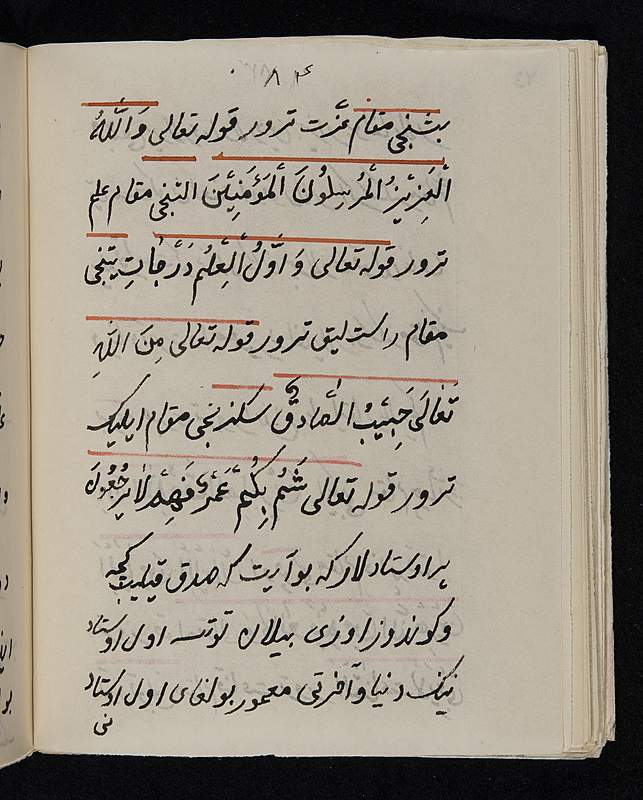 ۸۴
بشنجی مقام عزّت ترور قوله تعالی وَاللّٰهُ
اَلْعَزِيْزُ الْمُرْسِلُوْنَ اَلْمُؤْمِنِيْنَ التنجی مقام علم
ترور قوله تعالی وَ اَوَّلُ الْعِلْمُ دَرَجَاتٍ یتنجی
مقام راست لیق ترور قوله تعالی مِنَ اللّٰهِ
تَعَالَی حَبِيْبُ الصَّادِقُ سکزنجی مقام ایلیک
ترور قوله تعالی شُمٌّ بُكْمٌ عُمْیٌ فَهُمْ لَا يَرْجِعُوْنَ
هر اوستادلار که بو آیت که صدق قیلیب کیچه
و کوندوز اوزی بیلان توتسه اول اوستاد
نینک دنیا و آخرتی معمور بولغای اول اوستاد
نی